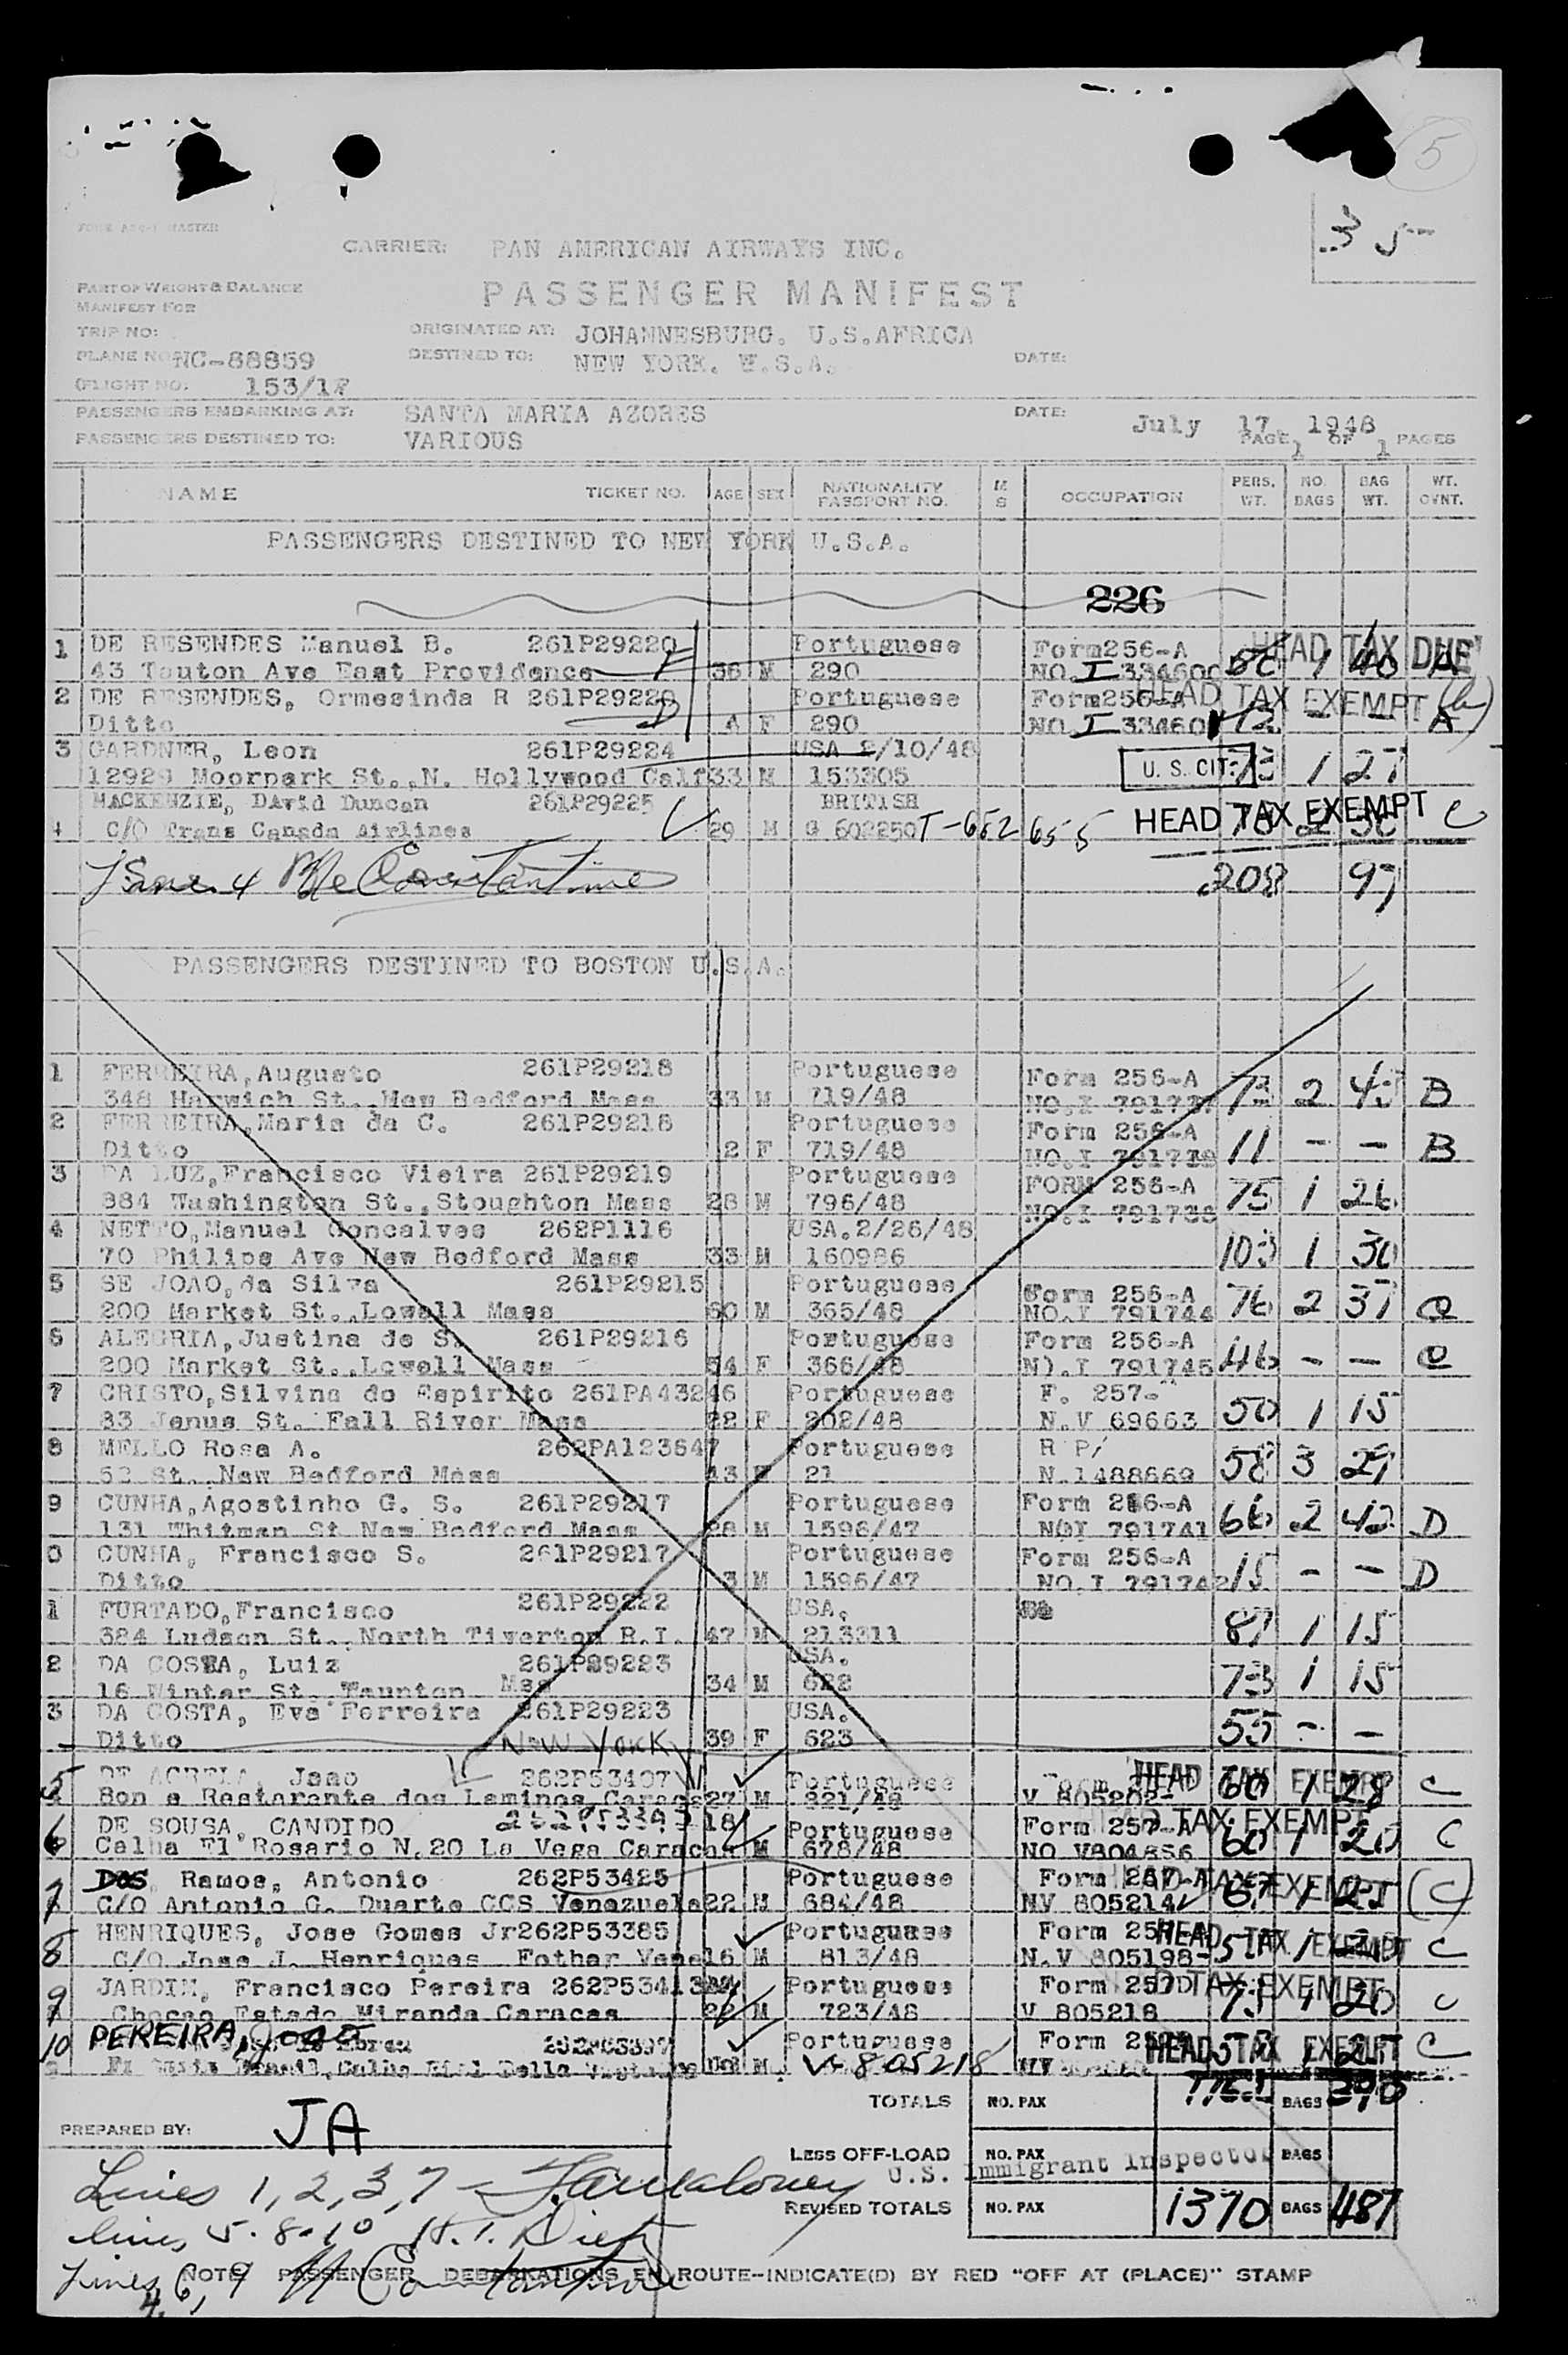 5
35
CARRIER: PAN AMERICAN AIRWAYS INC.
PART OF WEIGHT & BALANCE
MANIFEST FOR
PASSENGER MANIFEST
TRIP NO:
ORIGINATED AT: JOHANNESBURG. U.S.AFRICA
PLANE NO: NC-88859
DESTINED TO: NEW YORK. U.S.A.
DATE:
FLIGHT NO: 153/17
PASSENGERS EMBARKING AT: SANTA MARIA AZORES
DATE: July 17, 1948
PASSENGERS DESTINED TO: VARIOUS
PAGE 1 OF 1 PAGES
NAME TICKET NO. AGE SEX NATIONALITY PASSPORT NO. M S OCCUPATION PERS. WT. NO. BAGS BAG WT. WT. OVNT.
PASSENGERS DESTINED TO NEW YORK U.S.A.
226
1 DE RESENDES Manuel B. 261P29220 Portuguese Form256-A HEAD TAX DUE
43 Tauton Ave East Providence 36 M 290 NO. I 334600 1 40 A
2 DE RESENDES, Ormesinda R 261P29220 Portuguese Form256-A HEAD TAX EXEMPT
Ditto 4 F 290 NO. I 334601 12 - - A
3 GARDNER, Leon 261P29224 USA 2/10/48
12929 Moorpark St., N. Hollywood Calf 33 M 153305 U. S. CIT. 73 1 27
MACKENZIE, DAvid Duncan 261P29225 BRITISH
4 C/O Trans Canada Airlines 29 M G 602250 T-682655 HEAD TAX EXEMPT C
Line 4 Constantine 208 97
PASSENGERS DESTINED TO BOSTON U.S.A.
1 FERREIRA,Augusto 261P29218 Portuguese Form 256-A
348 Harwich St., New Bedford Mass 33 M 719/48 73 2 43 B
2 FERREIRA,Maria da C. 261P29218 Portuguese Form 256-A
Ditto 2 F 719/48 11 - - B
3 DA LUZ,Francisco Vieira 261P29219 Portuguese FORM 256-A
884 Washington St., Stoughton Mass 28 M 796/48 NO.I 791738 75 1 26
4 NETTO,Manuel Goncalves 262P1116 USA.2/26/48
70 Philips Ave New Bedford Mass 33 M 160986 103 1 30
5 SE JOAO,da Silva 261P29215 Portuguese Form 256-A
200 Market St.,Lowell Mass 60 M 365/48 NO.I 791744 76 2 37 C
6 ALEGRIA,Justina de S. 261P29216 Portuguese Form 256-A
200 Market St.,Lowell Mass 54 F 366/48 N).I 791745 46 - - C
7 CRISTO,Silvina do Espirito 261PA43246 Portuguese F. 257-
83 Janus St. Fall River Mass 22 F 202/48 N.V 69663 50 1 15
8 MELLO Rosa A. 262PA123647 Portuguese R P/
52 St., New Bedford Mass 43 21 N.1488669 58 3 29
9 CUNHA,Agostinho G. S. 261P29217 Portuguese Form 256-A
131 Whitman St New Bedford Mass 28 M 1596/47 NOI 791741 66 2 42 D
0 CUNHA, Francisco S. 261P29217 Portuguese Form 256-A
Ditto 3 M 1596/47 NO.I 791742 15 - - D
1 FURTADO,Francisco 261P29222 USA.
384 Ludson St., North Tiverton R.I. 47 M 213311 87 1 15
2 DA COSTA, Luiz 261P29223 USA.
16 Winter St. Taunton Mss 34 M 622 73 1 15
3 DA COSTA, Eva Ferreira 261P29223 USA.
Ditto 39 F 623 55 - -
NEW YORK
5 DE AGRELA, Joao 262P53407 Portuguese HEAD TAX EXEMPT
Bon e Restarante dos Laminos Caracas 27 M 821/48 V 805202- 60 1 28 C
6 DE SOUSA, CANDIDO 18 Portuguese Form 257-A HEAD TAX EXEMPT
Calha El Rosario N.20 La Vega Caracas M 678/48 60 1 20 C
7 DOS Ramos, Antonio 262P53425 Portuguese Form 257-A HEAD TAX EXEMPT
C/O Antonio G. Duarte CCS Venezuela 22 M 684/48 NV 805214 67 1 25 (C)
8 HENRIQUES, Jose Gomes Jr 262P53385 Portuguese Form 257-A HEAD TAX EXEMPT
C/O Jose J. Henriques Father Vene 16 M 813/48 N.V 805198- C
9 JARDIM, Francisco Pereira 262P53413 Portuguese Form 257 HEAD TAX EXEMPT
Chacao Estado Miranda Caracas 22 M 723/48 V 805216 73 1 20 C
10 PEREIRA, Portuguese Form 257 HEAD TAX EXEMPT
M V-805218 C
TOTALS NO. PAX BAGS 390
PREPARED BY: JA
LESS OFF-LOAD NO. PAX BAGS
U.S. Immigrant Inspector
Lines 1, 2, 3, 7
REVISED TOTALS NO. PAX 1370 BAGS 487
lines 5-8-10
Lines 6, 9 Constantine
4,
NOTE: PASSENGER DEBARKATIONS EN ROUTE--INDICATE(D) BY RED "OFF AT (PLACE)" STAMP